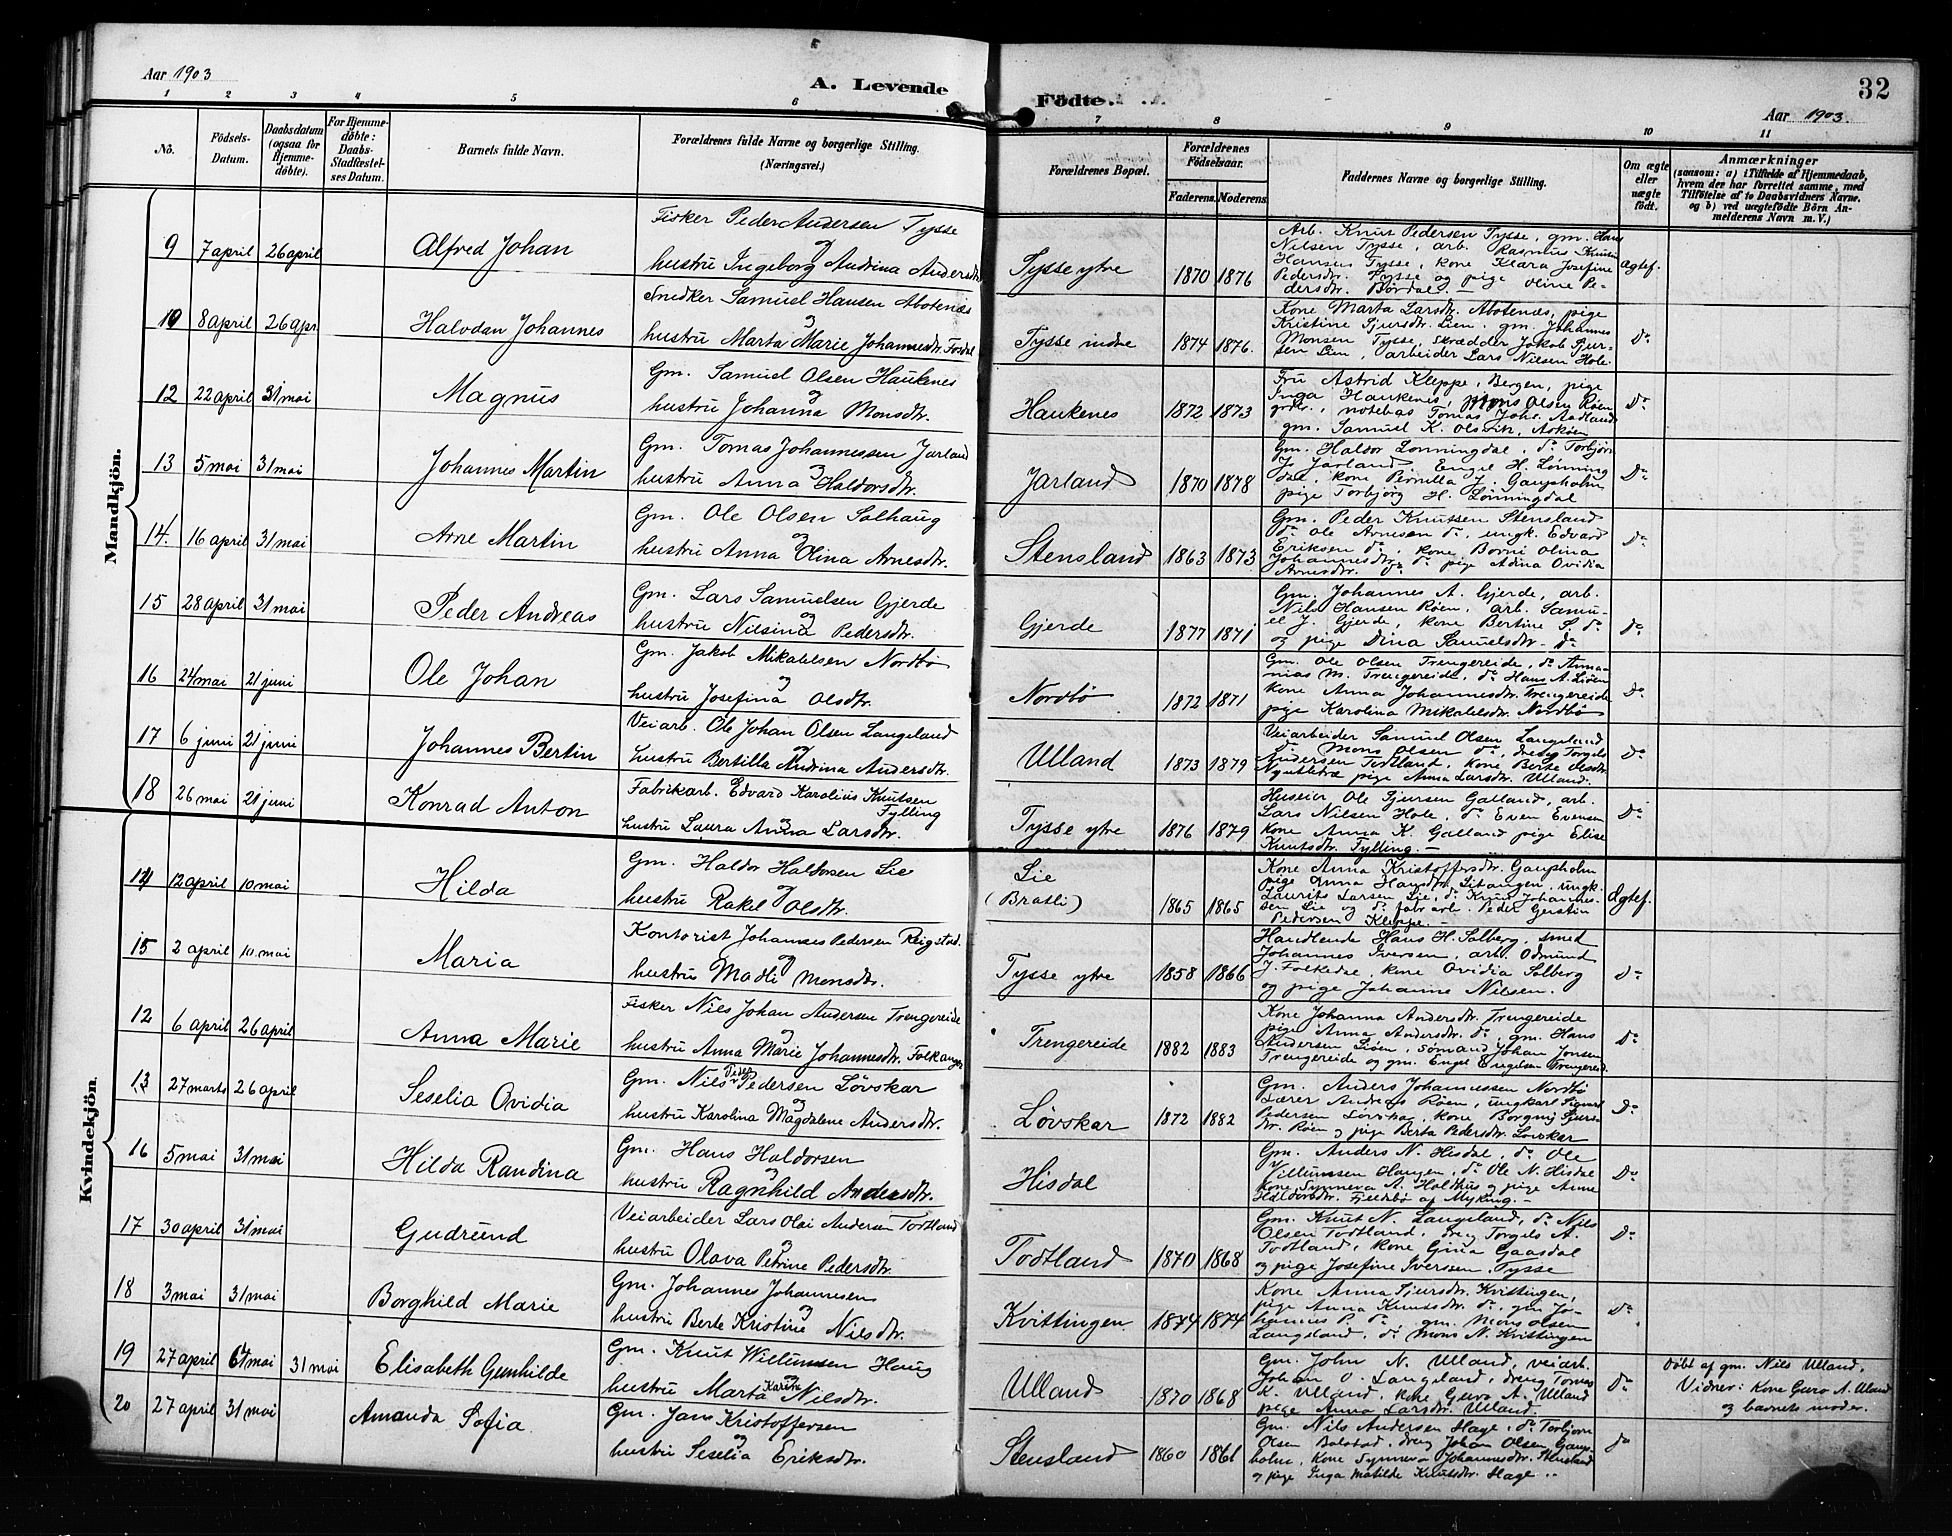 Aar 1903
A. Levende
Födte.
32
Aar 1903.
1 2 3 4 5 6 7 8 9 10 11
Nô.
Födsels-Datum.
Daabsdatum (ogsaa for Hjemme-döbte).
For Hjemme-döbte: Daabs-Stadfæstel-ses Datum.
Barnets fulde Navn.
Forældrenes fulde Navne og borgerlige Stilling. (Næringsvei.)
Forældrenes Bopæl.
Forældrenes Födselsaar.
Faderens. Moderens.
Faddernes Navne og borgerlige Stilling.
Om ægte eller uægte födt.
Anmærkninger
(saasom: a) i Tilfælde af Hjemmedaab,
hvem der har forrettet samme, med
Tilföielse af to Daabsvidners Navne.
og b) ved uægtefödte Börn An-
melderens Navn m. V.)
Mandkjön.
9 7 april 26 april Alfred Johan
Fisker Peder Andersen Tysse
og
hustru Ingeborg Andrina Andersdtr.
Tysse ytre 1870 1876
Arb. Knut Pedersen Tysse, gm. Hans
Nilsen Tysse, arb. Rasmus Knutsen
Hansen Tysse, kone Klara Josefine
Pedersdr. Tysse og pige Oline Pe-
dersdr. Børdal. —
Ægtef.
10 8 april 26 apr. Halvdan Johannes
Snedker Samuel Hansen Abotenæs
og
hustru Marta Marie Johannesdtr. Fosdal
Tysse indre 1874 1876.
Kone Marta Larsdtr. Abotenæs, pige
Kristine Sjursdtr. Lien. gm. Johannes
Monsen Tysse, skrædder Jakob Sjur-
sen Lien, arbeider Lars Nilsen Hole.
Do
12 22 april 31 mai Magnus
Gm. Samuel Olsen Haukenes
og
hustru Johanna Monsdtr.
Haukenes 1872 1873
Fru Astrid Kleppe, Bergen, pige
Inga Haukenes, Mons Olsen Røen
grkr., notebas Tomas Johs. Aadland
gm. Samuel K. Olsvik, Askøen
Do
13 5 mai 31 mai Johannes Martin
Gm. Tomas Johannessen Jarland
og
hustru Anna Haldorsdtr.
Jarland 1870 1878
Gm. Haldor Lønningdal, do Torbjørn
Js Jarland, Engel H. Lønning
dal, kone Pernilla J. Gaupholm
pige Torbjørg H. Lønningdal
Do
14. 16 april 31 mai Arne Martin
Gm. Ole Olsen Solhaug
og
hustru Anna Olina Arnesdtr.
Stensland 1863 1873
Gm. Peder Knutsen Stensland
do Ole Arnesen do, ungk. Edvard
Eriksen do, kone Borni Olina
Johannesdtr. do pige Adina Ovidia
Arnesdtr. do
Do
15 28 april 31 mai Peder Andreas
Gm. Lars Samuelsen Gjerde
og
hustru Nilsina Pedersdtr.
Gjerde 1877 1871
Gm. Johannes A. Gjerde, arb.
Nils Hansen Røen, arb. Samu-
el J. Gjerde, kone Bertine S. do
og pige Dina Samuelsdtr. do
Do
16 24 mai 21 juni Ole Johan
Gm. Jakob Mikalelsen Nordbø
og
hustru Josefina Olsdtr.
Nordbø 1872 1871
Gm. Ole Olsen Trengereide, do Anna-
nias M. Trengereide, do Hans A. Liøen
kone Anna Johannesdtr. Trengereide
pige Karolina Mikalelsdtr. Nordbø
Do
17 6 juni 21 juni Johannes Bertin
Veiarb. Ole Johan Olsen Langeland
og
hustru Bertilla Andrina Andersdtr.
Ulland 1873 1879
Veiarbeider Samuel Olsen Langeland
do Mons Olsen do, dreng Torgels
Andersen Todtland, kone Berte Olsdtr.
pige Anna Larsdtr. Ulland.
Do
18 26 mai 21 juni Konrad Anton
Fabrikarb. Edvard Karolius Knutsen
Fylling
og
hustru Laura Anna Larsdtr.
Tysse ytre 1876 1879
Huseier Ole Sjursen Galland, arb.
Lars Nilsen Hole, do Even Evensen
kone Anna K. Galland pige Elise
Knutsdtr. Fylling. —
Do
Kvindekjön.
14 12 april 10 mai Hilda
Gm. Haldor Haldorsen Lie
og
hustru Rakel Olsdtr.
Lie
(Bratli) 1865 1865
Kone Anna Kristoffersdtr. Gaupholm
pige Anna Hansdtr. Litangen, ungk.
Laurits Larsen Lie, do Knut Johannes-
sen Lie og do fabr. arb. Peder Gerstin
Pedersen Kleppe.
Ægtef.
15 2 april 10. mai Maria
Kontorist Johannes Pedersen Reigstad.
og
hustru Madli Monsdtr.
Tysse ytre 1858 1866
Handlende Hans H. Solberg, smed
Johannes Iversen, arb. Odmund
J. Folkedae, kone Ovidia Solberg
og pige Johanne Nilsen.
Do
12 6 april 26 april Anna Marie
Fisker Nils Johan Andersen Trengereide
og
hustru Anna Marie Johannesdtr. Folkanger
Trengereide 1882 1883
Kone Johanna Andersdtr. Trengereide
pige Anna Andersdtr. do, gm. Hans
Andersen Liøen, sømand Johan Jonsen
Trengereide og gm. Engel Engelsen Trengereid.
Do
13 27 marts 26 april Seselia Ovidia
Gm. Nils Peder Pedersen Løvskar
og
hustru Karolina Magdalene Andersdtr.
Løvskar 1872 1882
Gm. Anders Johannessen Nordbø
Lærer Andreas Røen, ungkarl Sigurd
Pedersen Løvskar, kone Borgny Sjurs-
dtr. Røen og pige Berta Pedersdtr. Løvskar
Do
16 5 mai 31 mai Hilda Randina
Gm. Hans Haldorsen
og
hustru Ragnhild Andersdtr.
Hisdal
Gm. Anders N. Hisdal, do Ole
Villumssen Haugen, do Ole N. Hisdal
kone Synneva A. Holdhus og pige Anne
Haldorsdtr. Fjeldsbø af Myking. —
Do
17 30 april 31 mai Gudrund
Veiarbeider Lars Olai Andersen Todtland
og
hustru Olava Petrine Pedersdtr.
Todtland 1870 1868
Gm. Knut N. Langeland, do Nils
Olsen Todtland, dreng Torgels A.
Todtland, kone Gina Gaasdal
og pige Josefine Iverssen, Tysse
Do
18 3 mai 31 mai Borghild Marie
Gm. Johannes Johannesen
og
hustru Berte Kristine Nilsdtr.
Kvittingen. 1874 1874
Kone Anna Sjursdtr. Kvittingen,
pige Anna Knutsdtr. do, gm Jo-
hannes P. do, gm. Mons Olsen
Langeland, do Mons N. Kvittingen
Do
19 27 april mai 31 mai Elisabeth Gunhilde
Gm. Knut Willumsen Haug
og
hustru Marta Karine Nilsdtr.
Ulland 1870 1868
Gm. John N. Ulland, veiarb.
Johan O. Langeland, dreng Tomas
K. Ulland, kone Guro A. Ulland
pige Anna Larsdtr. Ulland.
Do
Døbt af gm. Nils Ulland.
Vidner: Kone Guro A. Uland
og barnets moder.
20 27 april 31 mai Amanda Sofia
Gm. Jans Kristoffersen
og
hustru Seselia Eriksdtr.
Stensland 1860 1861
Gm. Nils Andersen Hage, do Torbjørn
Olsen Bolstad, dreng Johan Olsen Gaup-
holm, kone Synneva Johannesdtr. Stensland
og pige Inga Matilde Knutsdtr. Hage ..
Do